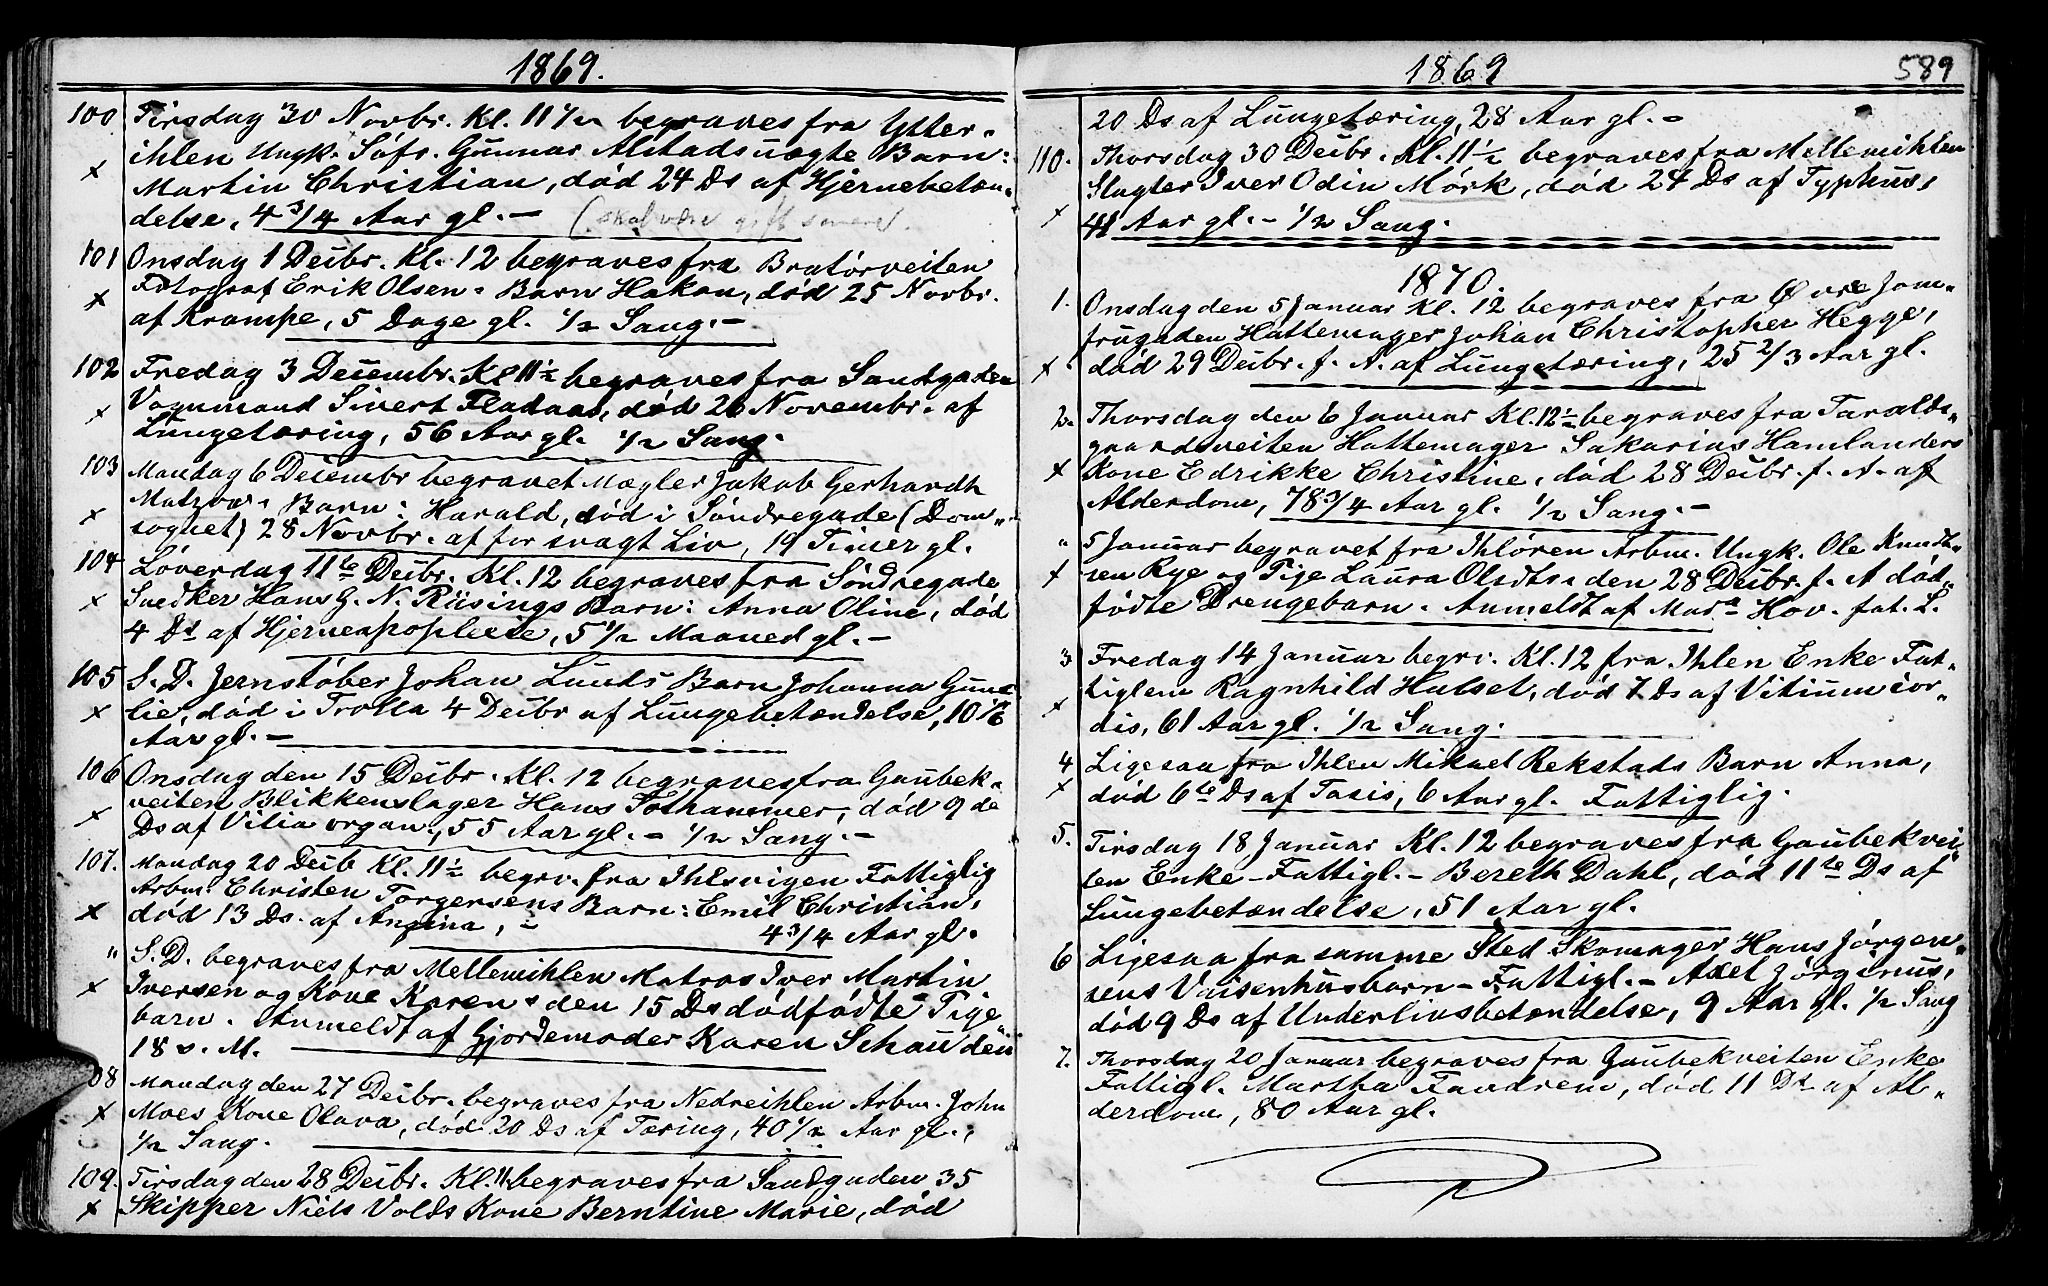 1869.
100 Tirsdag 30 Novbr. Kl. 11 1/2 begraves fra Ytter-
ihlen Ungk. Søfs. Gunnar Alstads uægte Barn:
Martin Christian, død 24 Ds af Hjernebetæn-
delse, 4 3/4 Aar gl. – (skal være gift senere).
101 Onsdag 1 Decbr. Kl. 12 begraves fra Bratørveiten
Fotograf Erik Olsens Barn Hakon, død 25 Novbr.
af Krampe, 5 Dage gl. 1/2 Sang. –
102 Fredag 3 Decembr. Kl 11 1/2 begraves fra Sandgaden
Vognmand Sivert Fladaas, død 26 Novembr. af
Lungetæring, 56 Aar gl. 1/2 Sang.
103 Mandag 6 Decembr begravet Mægler Jakob Gerhardt
Matzows Barn: Harald, død i Søndregade (Dom-
sognet) 28 Novbr. af for svagt Liv, 19 Timer gl.
104 Løverdag 11te Decbr. Kl. 12 begraves fra Søndregade
Snedker Hans G. N. Riisings Barn: Anna Oline, død
4 Ds af Hjerneapoplexie, 5 1/2 Maaned gl. –
105 S. D. Jernstøber Johan Lunds Barn Johanna Gune-
lie, død i Trolla 4 Decbr af Lungebetændelse, 10
Aar gl. –
106 Onsdag den 15 Decbr. Kl. 12 begraves fra Gaubek-
veiten Blikkenslager Hans Solhammer, død 9de
Ds af Vitia organ., 55 Aar gl. – 1/2 Sang. –
107. Mandag 20 Decb Kl. 11 1/2 begrv. fra Ihlsvigen Fattiglig
Arbm. Christen Torgersens Barn: Emil Christian,
død 13 Ds. af Angina, – 4 3/4 Aar gl.
" S. D. begraves fra Mellemihlen Matros Iver Martin
Iversen og Kone Karens den 15 Ds dødfødte Pige
barn. Anmeldt af Gjordemoder Karen Schau den
18 s. M.
108 Mandag den 27 Decbr. begraves fra Nedreihlen Arbm. John
Moes Kone Olava, død 20 Ds af Tæring, 40 1/2 Aar gl.,
1/2 Sang.
109. Tirsdag den 28 Decbr. Kl. 11 begraves fra Sandgaden 35
Skipper Niels Volds Kone Berntine Marie, død
1869 589
20 Ds af Lungetæring, 28 Aar gl. –
110. Thorsdag 30 Decbr. Kl. 11 1/2 begraves fra Mellemihlen
Slagter Iver Odin Mörk, død 24 Ds af Typhus,
41 Aar gl. – 1/2 Sang.
1870.
1. Onsdag den 5 Januar Kl. 12 begraves fra Øvre Jom-
frugaden Hattemager Johan Christopher Hegge,
død 29 Decbr. f. A. af Lungetæring, 25 2/3 Aar gl.
2. Thorsdag den 6 Januar Kl. 12 1/2 begraves fra Taralds-
gaardsveiten Hattemager Sakarius Hamlanders
Kone Edrikke Christine, død 28 Decbr. f. A. af
Alderdom, 78 3/4 Aar gl. 1/2 Sang. –
" 5 Januar begravet fra Ihløren Arbm. Ungk. Ole Knudt-
sen Rye og Pige Laura Olsdts den 28 Decbr. f. A død-
fødte Drengebarn. Anmeldt af Hov. fat. L.
3 Fredag 14 Januar begrv. Kl. 12 fra Ihlen Enke Fat-
tiglem Ragnhild Halset, død 7 Ds af Vitium cor-
dis, 61 Aar gl. 1/2 Sang.
4 Ligesaa fra Ihlen Mikael Rekstads Barn Anna,
død 6te Ds af Tæsis, 6 Aar gl. Fattiglig.
5. Tirsdag 18 Januar Kl. 12 begraves fra Gaubekvei-
ten Enke – Fattigl. – Bereth Dahl, død 11te Ds af
Lungebetændelse, 51 Aar gl.
6 Ligesaa fra samme Sted Skomager Hans Jørgen-
sens Vaisenhusbarn – Fattigl. – Axel Jörginus,
død 9 Ds af Underlivsbetændelse, 9 Aar gl. 1/2 Sang
7. Thorsdag 20 Januar begraves fra Gaubekveiten Enke
Fattigl. Martha Fandrem, død 11 Ds af Al-
derdom, 80 Aar gl.